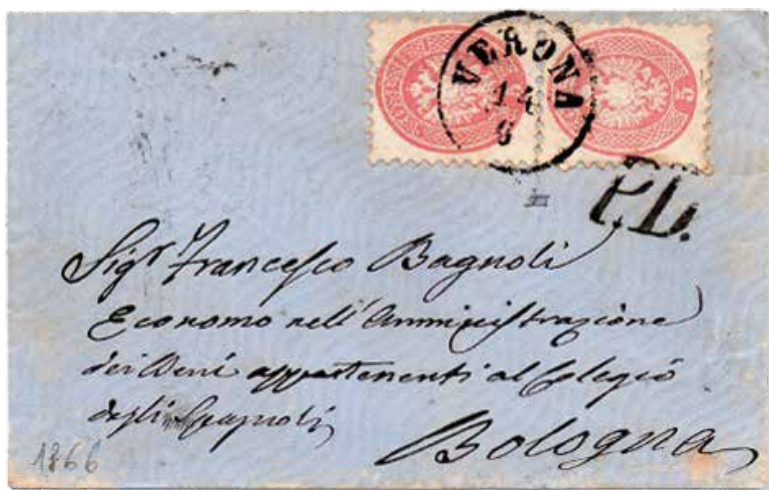 VERONA
14
6
P.D.
Sigr Francesco Bagnoli
Economo nell'Amministrazione
dei Beni appartenenti al Colegio
degli Spagnoli
Bologna
1866